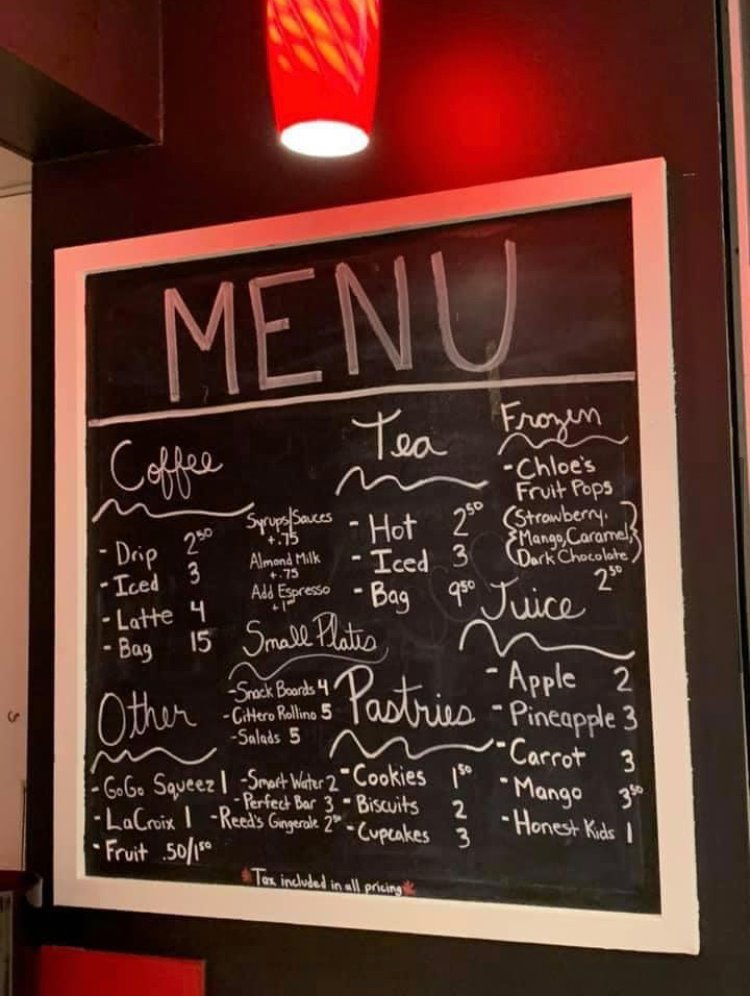 MENU
Coffee
- Drip 2.50
- Iced 3
- Latte 4
- Bag 15
Syrups/Sauces
+.75
Almond Milk
+.75
Add Espresso
Small Plates
- Snack Boards 4
- Cittero Rollino 5
- Salads 5
Tea
- Hot 2.50
- Iced 3
- Bag 9.50
Frozen
- Chloe's
Fruit Pops
(Strawberry,
Mango, Caramel,
Dark Chocolate)
2.50
Juice
- Apple 2
- Pineapple 3
- Carrot 3
- Mango 3.50
- Honest Kids 1
Other
- GoGo Squeez 1
- LaCroix 1
- Fruit .50/1.50
- Smart Water 2
- Perfect Bar 3
- Reed's Gingerale 2.50
Pastries
- Cookies 1.50
- Biscuits 2
- Cupcakes 3
*Tax included in all pricing*